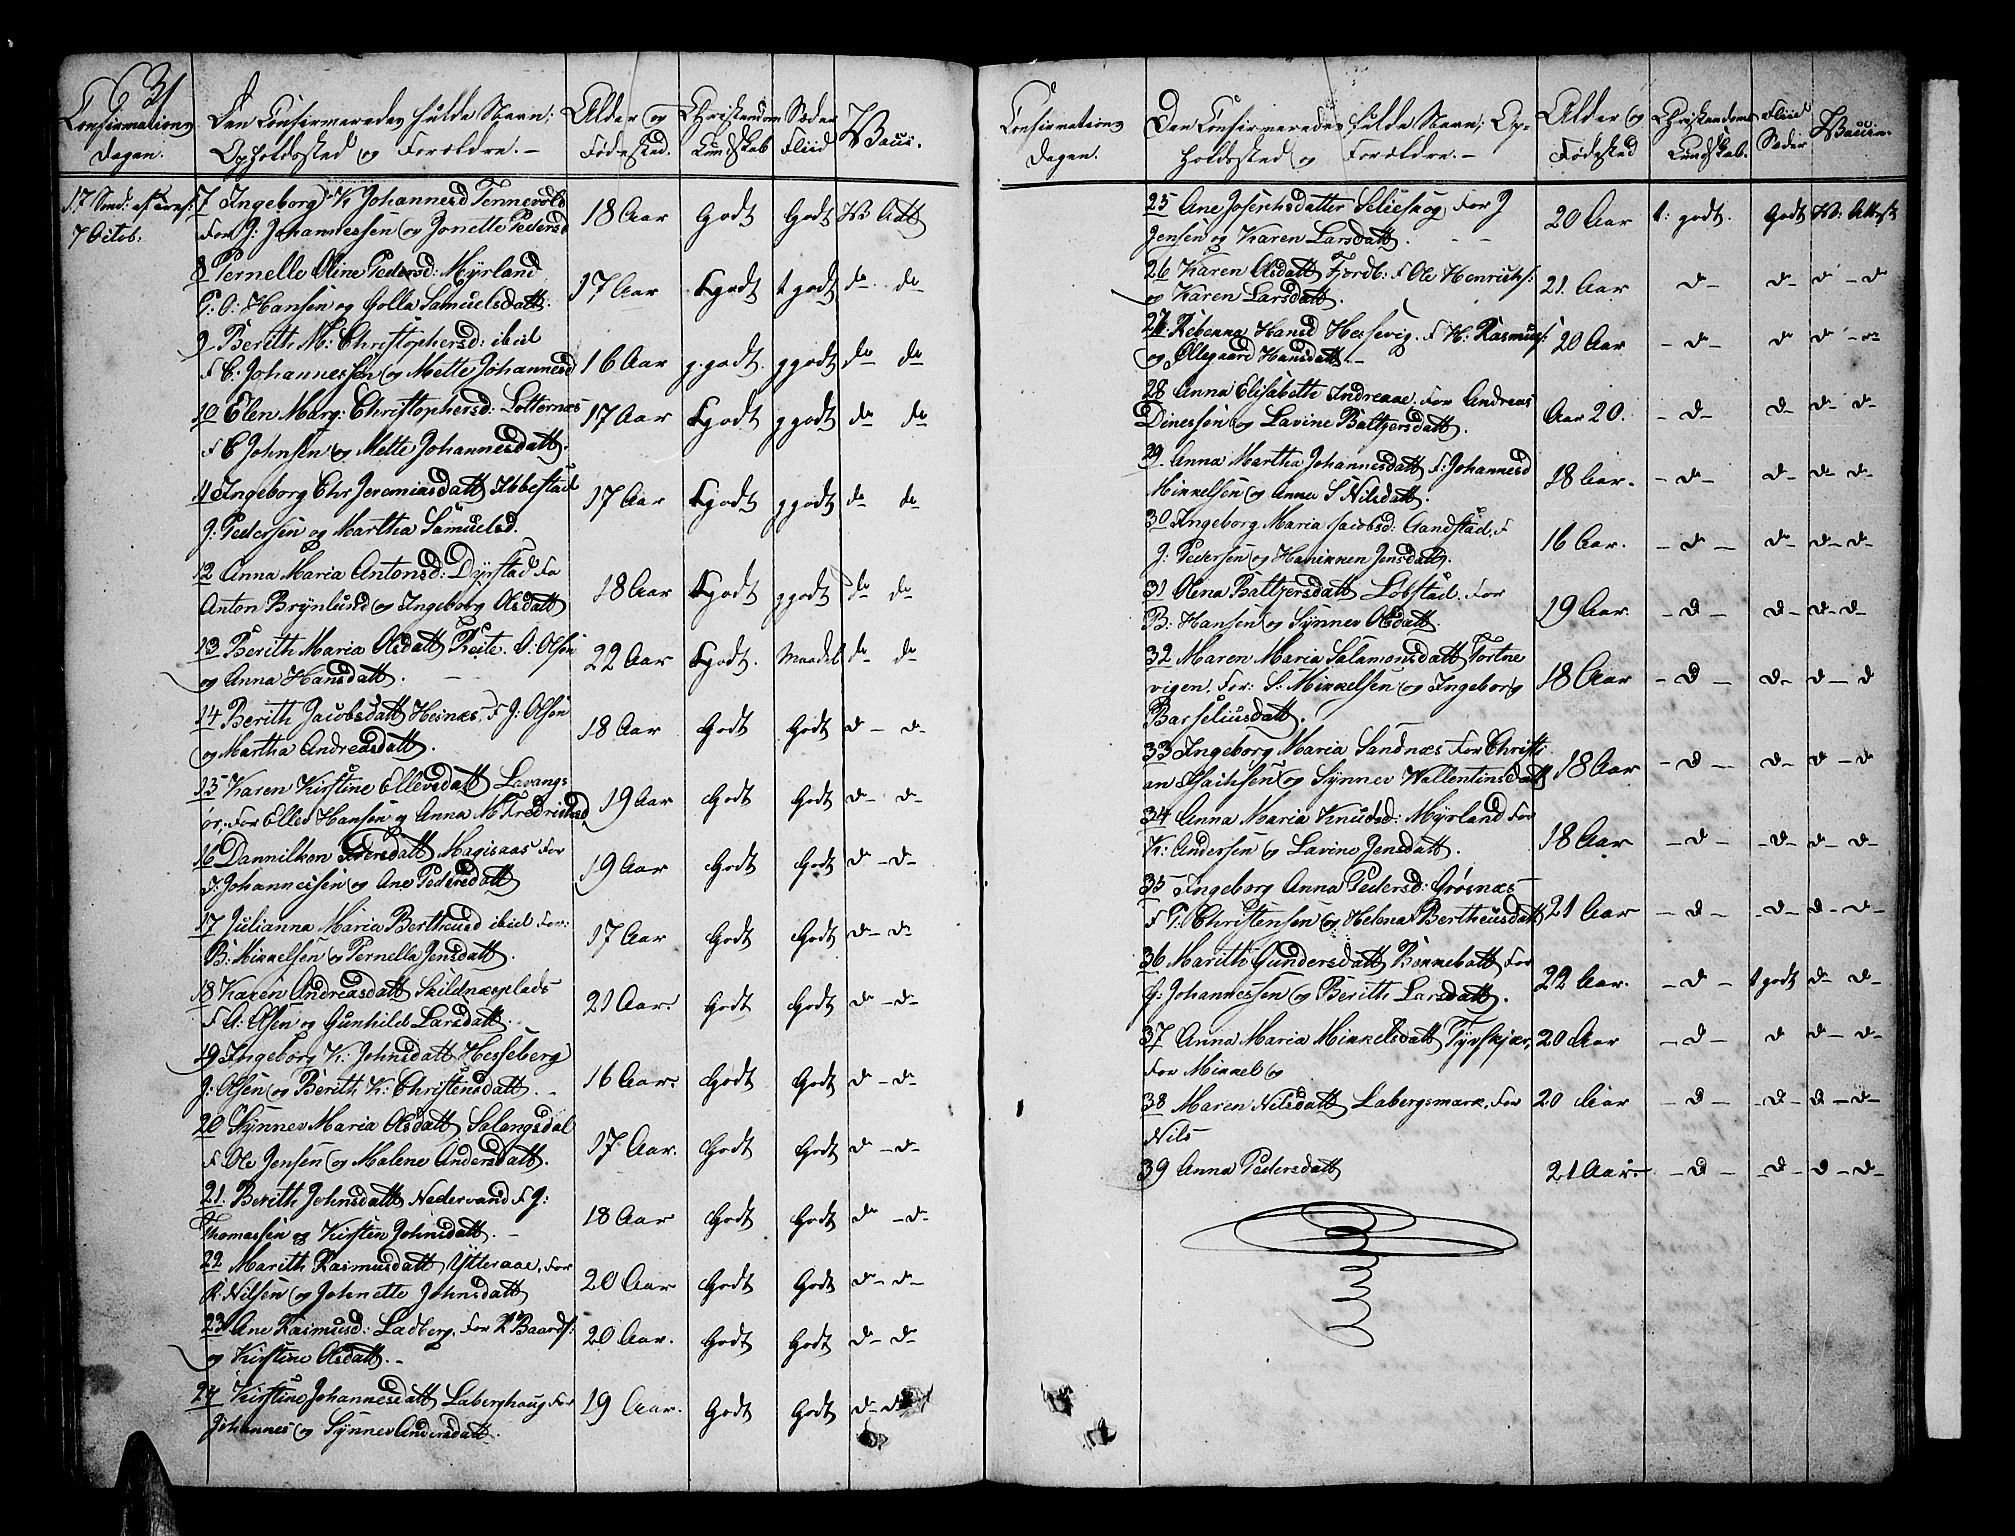 31
Confirmations
Dagen.
Den Confirmeredes fulde Navn:
Opholdssted og Forældre. –
Alder og
Fødested.
Christendom
Kundskab
Sæder
Fliid
Vacci.
17 Sønd: af Trinf:
7 Octob:
7 Ingeborg K Johannesd Tennevold
For J: Johannessen og Jonette Pedersd
18 Aar Godt Godt Vr Att
8 Pernelle Oline Pedersd: Myrland
P: O: Hansen og Golla Samuelsdatt.
17 Aar tgodt t godt do do
9 Berith M: Christophersd: ibid
F C: Johannessen og Mette Johannesd
16 Aar g. godt. ggodt do do
10 Elen Marg: Christophersd: Lotternæs
F C Johnsen og Mette Johannesdatt.
17 Aar tgodt ggodt do do
11 Ingeborg Chr Jeremiasdatt Ibbestad
J: Pedersen og Martha Samuelsd.
17 Aar tgodt ggodt do do
12 Anna Maria Antonsd: Dyrstad Fo
Anton Brynlund og Ingeborg Olsdatt
18 Aar tgodt ggodt do do
13 Berith Maria Olsdatt Reite. O: Olsen
og Anna Hansdatt.
22 Aar tgodt. Maadel do do
14 Berith Jacobsdatt Hesnæs, F J: Olsen
og Martha Andreasdatt.
18 Aar Godt Godt d– d–
15 Karen Kirstine Ellevsdatt Lavangs
ør, For Ellev Hansen og Anna M Fredrichsd
19 Aar Godt Godt d– d–
16 Dannilken Pedersdatt Magisaas For
P: Johannessen og Ane Pedersdatt
19 Aar Godt Godt d– d–
17 Julianna Maria Bertheusd ibid For:
B: Mikkelsen og Pernella Jensdatt.
17 Aar Godt Godt d– d–
18 Karen Andreasdatt Skildnæsplads
F A: Olsen og Gunhild Larsdatt.
21 Aar. Godt Godt d– d–
19 Ingeborg K: Johnsdatt Hesseberg
J: Olsen og Berith K: Christensdatt. –
16 Aar: Godt Godt d– d–
20 Synnev Maria Olsdatt Salangsdal
F Ole Jensen og Malene Andersdatt.
17 Aar. Godt Godt d– d–
21. Berith Johnsdatt Nedervand F J:
Thomassen og Kirsten Johnsdatt. –
18 Aar Godt Godt d– d–
22 Marith Rasmusdatt Ytteraae, For
R: Nilsen og Johnette Johnsdatt
20 Aar Godt Godt d– d–
23 Ane Rasmusd: Ladberg, For R Baards:
og Kirstine Olsdatt. –
20 Aar. Godt Godt d– d–
24 Kirstine Johannesdatt Laberghaug For
Johannes og Synnev Andersdatt.
19 Aar. Godt Godt d– d–
Confirmations
Dagen.
Den Confirmeredes fulde Navn, Op-
holdssted og Forældre. –
Alder og
Fødested
Christendoms
Kundskab.
Fliid
Sæder
Vaccin.
25 Ane Josephsdatter Selieskog For J
Jensen og Karen Larsdatt.
20 Aar t: godt. Godt Vr: Attest
26 Karen Olsdatt Fjordb: F Ole Henrichs:
og Karen Larsdatt.
21. Aar –d– –d– d – d
27 Rebenna Hansd Hessevig. F H: Rasmuss:
og Øllegaard Hansdatt. –
20 Aar –d– d d –
28 Anna Elisabeth Indreaae. For Andreas
Dinessen og Lavine Baltzersdatt.
Aar 20. –d– d– d– d–
29. Anna Martha Johannesdatt F: Johannesd
Mikkelsen og Anna S Nilsdatt.
18 Aar. –d– d– d– d–
30 Ingeborg Maria Jacobsd: Gamstad, F
J: Pedersen og Hanikken Jensdatt.
16 Aar. –d– d– d– d–
31 Olena Baltzersdatt Løbstad. For
B: Hansen og Synnev Olsdatt.
19 Aar. –d– d– d– d–
32 Maren Maria Salamonsdatt Tortne
vigen. For: S: Mikkelsen og Ingeborg
Barseliusdatt.
18 Aar –d– d– d – d
33 Ingeborg Maria Sandnæs For Christi
an Isachsen og Synnev Wallentinsdatt
18 Aar –d– d– d – d
34 Anna Maria Knudsd: Myrland For
K: Andersen og Lavine Jensdatt.
18 Aar –d– –d– d– d–
35 Ingeborg Anna Pedersd: Grøsnæs –
F P: Christensen og Helena Bertheusdatt
21 Aar –d– –d– d– d–
36 Marith Gundersdatt Bonnebatt For
G: Johannessen og Berith Larsdatt.
22 Aar. –d– t godt d– d–
37 Anna Maria Mikkelsdatt Fyrskjær,
For Mikkel og
20 Aar –d– d d– d–
38 Maren Nilsdatt Labergsmark, For
Nils
20 Aar –d– –d– d– d–
39 Anna Pedersdatt
21 Aar– –d– –d– d– d–